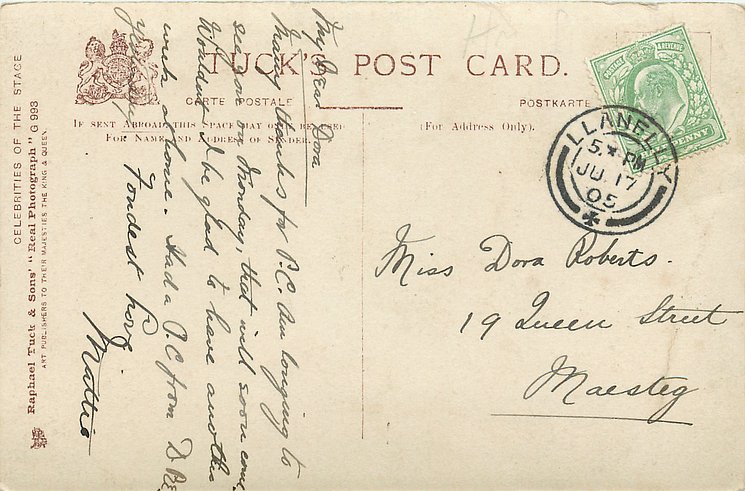 TUCK'S POST CARD.
CARTE POSTALE
POSTKARTE
IF SENT ABROAD THIS SPACE MAY BE USED
FOR NAME AND ADDRESS OF SENDER.
(For Address Only).
POSTAGE & REVENUE
PENNY
LLANELLY
5.* PM
JU. 17
05
Miss Dora Roberts.
19 Queen Street
Maesteg
My Dear Dora
Many thanks for P.C. Am longing to
see you on Monday, that will soon come.
Wouldn't I be glad to have another
week at home. Had a P.C from D
yesterday
Fondest love
Mattie
CELEBRITIES OF THE STAGE
Raphael Tuck & Sons' "Real Photograph" G 993
ART PUBLISHERS TO THEIR MAJESTIES THE KING & QUEEN.